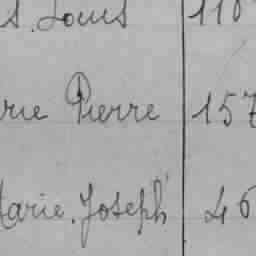 s. Louis 110
rie Pierre 157
Marie. Joseph 46